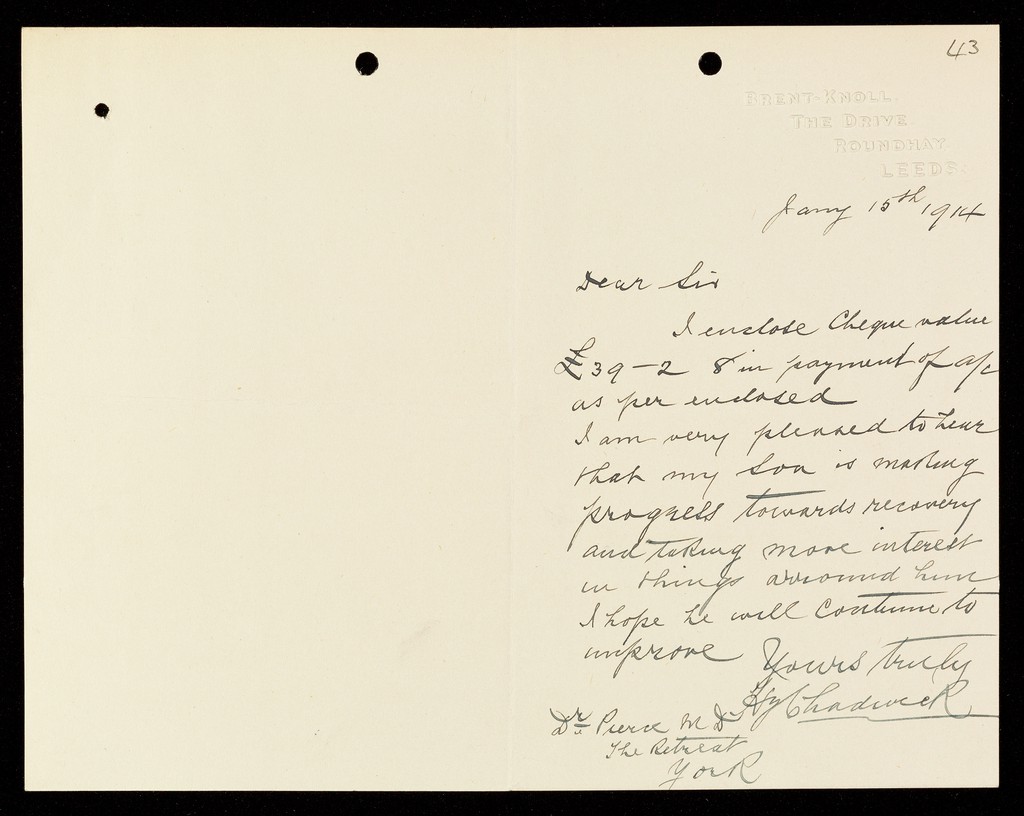 43
BRENT-KNOLL.
THE DRIVE.
ROUNDHAY.
LEEDS.
Jany 15th 1914
Dear Sir
I enclose Cheque value
£39-2 8 in payment of a/c
as per enclosed
I am very pleased to hear
that my Son is making
progress towards recovery
and taking more interest
in things arround him
I hope he will continue to
improve Yours truly
Hy Chadwick
Dr Pierce M D
The Retreat
York